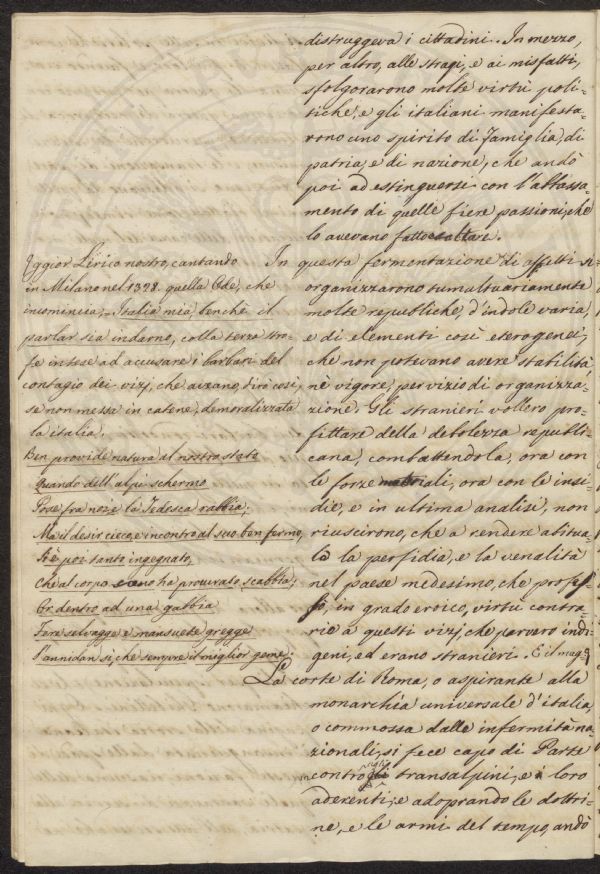 distruggeva i cittadini. In mezzo,
per altro, alle stragi, e ai misfatti,
sfolgorarono molte virtù poli-
tiche, e gli italiani manifesta-
rono uno spirito di famiglia, di
patria, e di nazione, che andò
poi ad estinguersi con l'abbassa-
mento di quelle fiere passioni, che
lo avevano fatto esaltare.
In questa fermentazione di affetti si
organizzarono tumultuariamente
molte republiche, d'indole varia,
e di elementi così eterogenei,
che non potevano avere stabilità,
nè vigore, per vizio di organizza-
zione. Gli stranieri vollero pro-
fittare della debolezza republi-
cana, combattendola, ora con
le forze materiali, ora con le insi-
die, e in ultima analisi, non
riuscirono, che a rendere abitua-
le la perfidia, e la venalità
nel paese medesimo, che profes-
sò, in grado eroico, virtù contra-
rie a questi vizj, che parvero indi-
geni, ed erano stranieri. E il mag-
ggior Lirico nostro, cantando
in Milano nel 1328. quella Ode, che
incomincia, Italia mia, benchè il
parlar sia indarno, colla terza stro-
fe intese ad accusare i barbari del
contagio dei vizj, che aveano, dirò così,
se non messa in catene, demoralizzata
la italia.
Ben provide natura al nostro stato
quando dell'alpi schermo
Pose fra noi e la Tedesca rabbia;
Ma il desir cieco, e incontro al suo ben fermo,
S'è poi tanto ingegnato,
Che al corpo sano ha procurato scabbia;
Or dentro ad una gabbia
Fere selvagge e mansuete gregge
S'annidan sì, che sempre il miglior geme;
La corte di Roma, o aspirante alla
monarchia universale d'italia
o commossa dalle infermità na-
zionali, si fece capo di Parte
contro gli transalpini, e i loro
aderenti; e adoprando le dottri-
ne, e le armi del tempo, andò